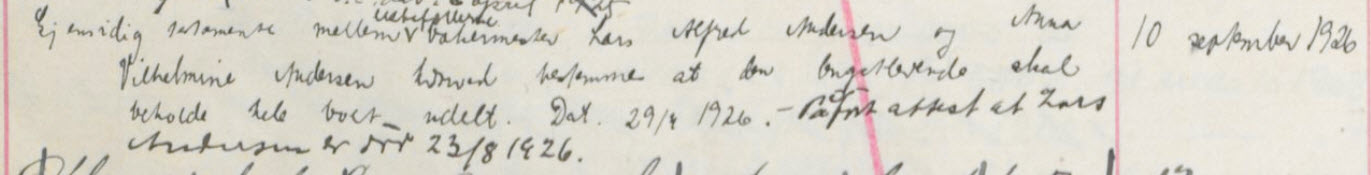 ektefellene
Gjensidig testamente mellem v bakermester Lars Alfred Andersen og Anna 10 september 1926
Vilhelmine Andersen hvorved bestemmes at den lengstlevende skal
beholde hele boet udelt. Dat. 29/4 1926. - Påført attest at Lars
Andersen er död 23/8 1926.